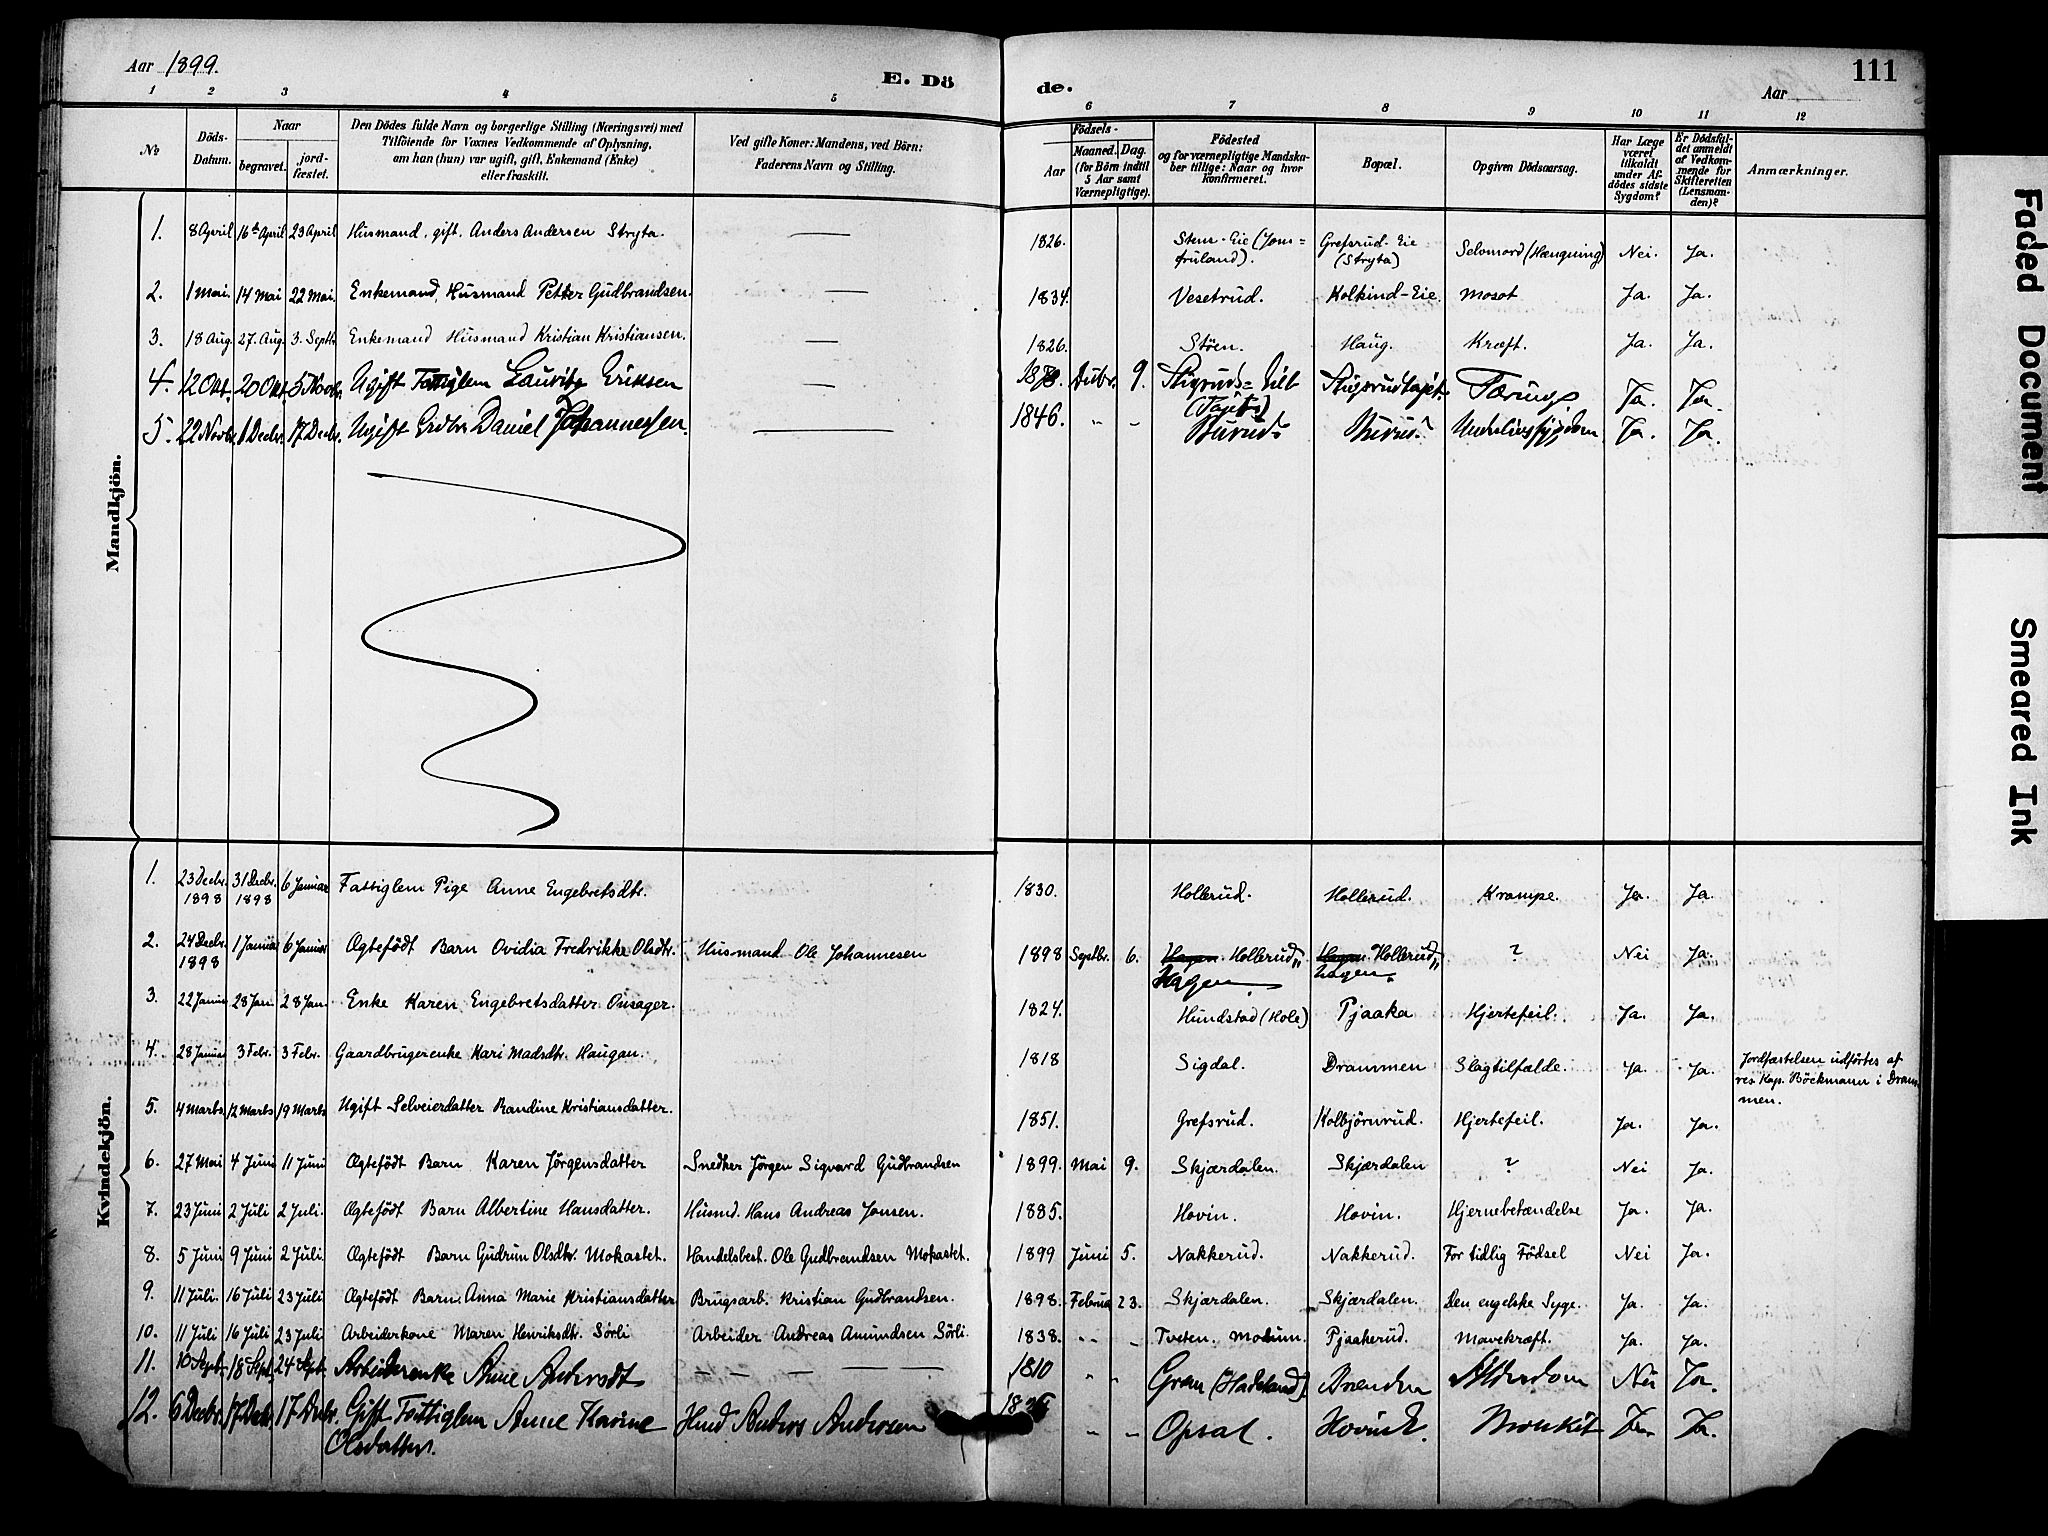 Aar 1899.
E. Dö
de.
Aar
111
1 2 3 4 5 6 7 8 9 10 11 12
№
Döds-Datum.
Naar
begravet.
jord-fæstet.
Den Dödes fulde Navn og borgerlige Stilling (Næringsvei) med
Tilföiende for Voxnes Vedkommende af Oplysning,
om han (hun) var ugift, gift, Enkemand (Enke)
eller fraskilt.
Ved gifte Koner: Mandens, ved Börn:
Faderens Navn og Stilling.
Födsels-
Aar
Maaned. Dag.
(for Börn indtil
5 Aar samt
Værnepligtige).
Födested
og for værnepligtige Mandska-
ber tillige: Naar og hvor
konfirmeret.
Bopæl.
Opgiven Dödsaarsag.
Har Læge
været
tilkaldt
under Af-
dödes sidste
Sygdom?
Er Dödsfal-
det anmeldt
af Vedkom-
mende for
Skifteretten
(Lensman-
den)?
Anmærkninger.
Mandkjön.
1. 8 April 16de April 23 April Husmand, gift, Anders Andersen Stryta. — 1826. Stens-Eie (Jom=
fruland). Grefsrud-Eie
(Stryta) Selvmord (Hængning) Nei. Ja.
2. 1 Mai. 14 Mai 22 Mai. Enkemand, Husmand Petter Gudbrandsen. — 1834. Vesetrud. Kolkind-Eie. Mosot Ja. Ja.
3. 18 Aug. 27. Aug. 3. Septb. Enkemand Husmand Kristian Kristiansen. — 1826. Støen. Haug. Kræft. Ja. Ja.
4. 12 Okt. 20 Okt. 5 Novbr. Ugift Fattiglem Lauritz Eriksen — Decbr. 9. Tæring Ja. Ja.
5. 22 Novbr. 1 Decbr. 17 Decbr. Ugift Daniel Johannessen. — 1846. „ „ Burud Burud Underlivssygdom Ja. Ja.
Kvindekjön.
1. 23 Decbr.
1898 31 Decbr.
1898 6 Januar Fattiglem Pige Anne Engebretsdtr. 1830. Hollerud. Hollerud. Krampe. Ja. Ja.
2. 24 Decbr.
1898 1 Januar 6 Januar Ægtefödt Barn Ovidia Fredrikke Olsdtr. Husmand Ole Johannesen 1898 Septbr. 6. Hagen. Hollerud
Hagen. Hagen. Hollerud
hagen. ? Nei Ja.
3. 22 Januar 28 Jan. 28 Jan. Enke Karen Engebretsdatter Onsager. 1824. Hundstad (Hole) Pjaaka Hjertefeil. Ja. Ja.
4. 28 Januar 3 Febr. 3 Febr. Gaardbrugerenke Kari Madsdtr. Haugan. 1818 Sigdal. Drammen Slagtilfælde. Ja. Ja. Jordfæstelsen udförtes af
res. Kap. Böckmann i Dram
men.
5. 4 Marts 12 Marts 19 Marts Ugift Selveierdatter Randine Kristiansdatter. 1851. Grefsrud. Kolbjörnrud. Hjertefeil. Ja. Ja.
6. 27 Mai 4 Juni 11 Juni Ægtefödt Barn Karen Jörgensdatter Snedker Jörgen Sigvard Gudbrandsen 1899. Mai 9. Skjærdalen. Skjærdalen ? Nei Ja.
7. 23 Juni 2 Juli 2 Juli. Ægtefödt Barn Albertine Hansdatter. Husmd. Hans Andreas Jonsen. 1885. Hovin. Hovin. Hjernebetændelse Ja. Ja.
8. 5 Juni 9 Juni 2 Juli. Ægtefödt Barn Gudrun Olsdtr. Mokastet. Handelsbest. Ole Gudbrandsen Mokastet. 1899 Juni 5. Nakkerud. Nakkerud. For tidlig Födsel Nei Ja.
9. 11 Juli. 16 Juli 23 Juli Ægtefödt Barn Anna Marie Kristiansdatter Brugsarb. Kristian Gudbrandsen. 1898. Februar 23. Skjærdalen. Skjærdalen. Den engelske Syge. Ja. Ja.
10. 11 Juli 16 Juli 23 Juli Arbeiderkone Maren Henriksdtr. Sörli Arbeider Andreas Amundsen Sörli. 1838. „ „ Tveten. Modum. Pjaakerud. Mavekræft. Ja. Ja.
11. 10 Septb. 18 Sept. 24 Sept. Arbeiderenke Anne Andersdt — — — 1810 „ „ Gran (Hadeland) Brenden Alderdom Nei Ja.
12. 6 Decbr. 17 Decbr. 17 Decbr. Gift Fattiglem Anne Karine
Olsdatter. Anders Andersen „ „ Opsal. Ja. Ja.
Faded Document
Smeared Ink